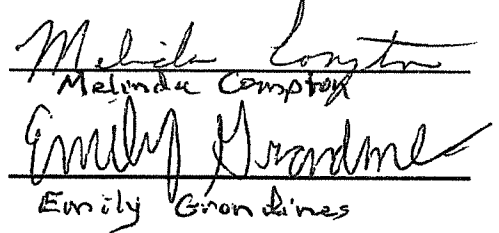 Melinda Compton
Melinda Compton
Emily Grondines
Emily Grondines